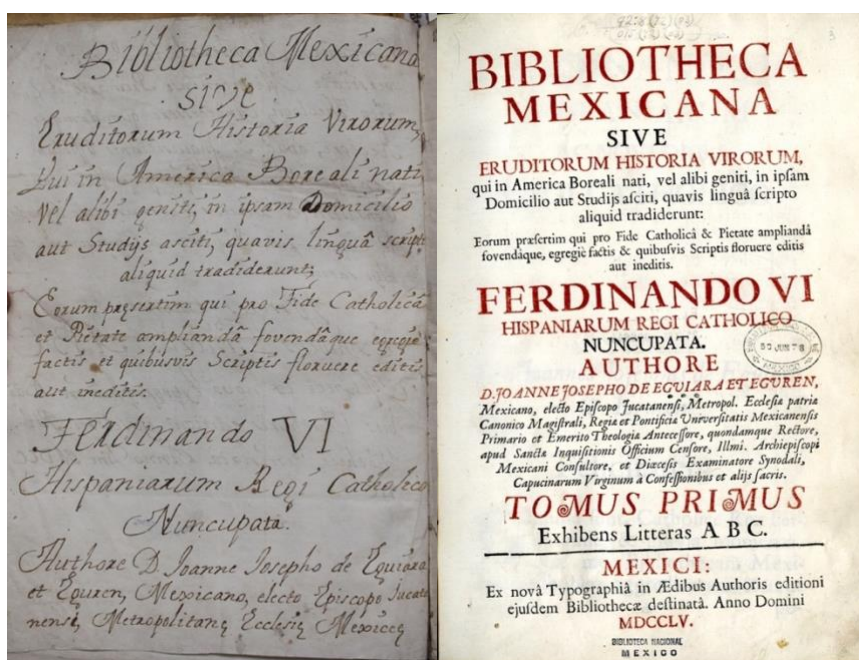 Bibliotheca Mexicana
sive
Eruditorum Historia Virorum,
Qui in America Boreali nati,
Vel alibi geniti, in ipsam Domicilio
aut Studijs asciti, quavis linguâ script
aliquid tradiderunt;
Eorum pręsertim qui pro Fide Catholicâ
et Pietate ampliandâ fovendâque egregie
factis et quibusvis Scriptis floruere editis
aut ineditis.
Ferdinando VI
Hispaniarum Regi Catholico
Nuncupata.
Authore D. Joanne Josepho de Eguiara
et Eguren, Mexicano, electo Episcopo Jucata
nensi, Metropolitanę Ecclesię Mexiceę
BIBLIOTHECA
MEXICANA
SIVE
ERUDITORUM HISTORIA VIRORUM,
qui in America Boreali nati, vel alibi geniti, in ipſam
Domicilio aut Studijs aſciti, quavis linguâ ſcripto
aliquid tradiderunt:
Eorum præſertim qui pro Fide Catholicâ & Pietate ampliandâ
fovendâque, egregiè factis & quibuſvis Scriptis floruere editis
aut ineditis.
FERDINANDO VI
HISPANIARUM REGI CATHOLICO
NUNCUPATA.
AUTHORE
D. JOANNE JOSEPHO DE EGUIARA ET EGUREN,
Mexicano, electo Epiſcopo Jucatanenſi, Metropol. Eccleſiæ patriæ
Canonico Magiſtrali, Regiæ et Pontificiæ Univerſitatis Mexicanenſis
Primario et Emerito Theologiæ Anteceſſore, quondamque Rectore,
apud Sanctæ Inquiſitionis Officium Cenſore, Illmi. Archiepiſcopi
Mexicani Conſultore, et Diœceſis Examinatore Synodali,
Capucinarum Virginum à Confeſſionibus et alijs ſacris.
TOMUS PRIMUS
Exhibens Litteras A B C.
MEXICI:
Ex novâ Typographiâ in Ædibus Authoris editioni
ejuſdem Bibliothecæ deſtinatâ. Anno Domini
MDCCLV.
BIBLIOTECA NACIONAL
MEXICO